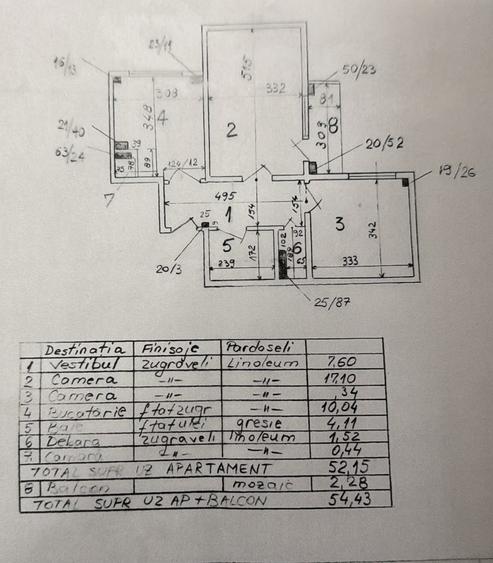 23/11
16/13
515
50/23
308
332
81
348
4
309
8
21/40
2
20/52
63/24
89
19/26
124/12
7
495
154
154
1
3
342
25
5
172
102
6
239
333
20/3
25/87
Destinatia Finisaje Pardoseli
1 Vestibul zugraveli Linoleum 7,60
2 Camera —"— —"— 17,10
3 Camera —"— —"— ,34
4 Bucatarie ftatzugr —"— 10,04
5 Baie ftatuiei gresie 4,11
6 Debara zugraveli linoleum 1,52
7 Camara —"— —"— 0,44
TOTAL SUPR UZ APARTAMENT 52,15
8 Balcon mozaic 2,28
TOTAL SUPR UZ AP+BALCON 54,43